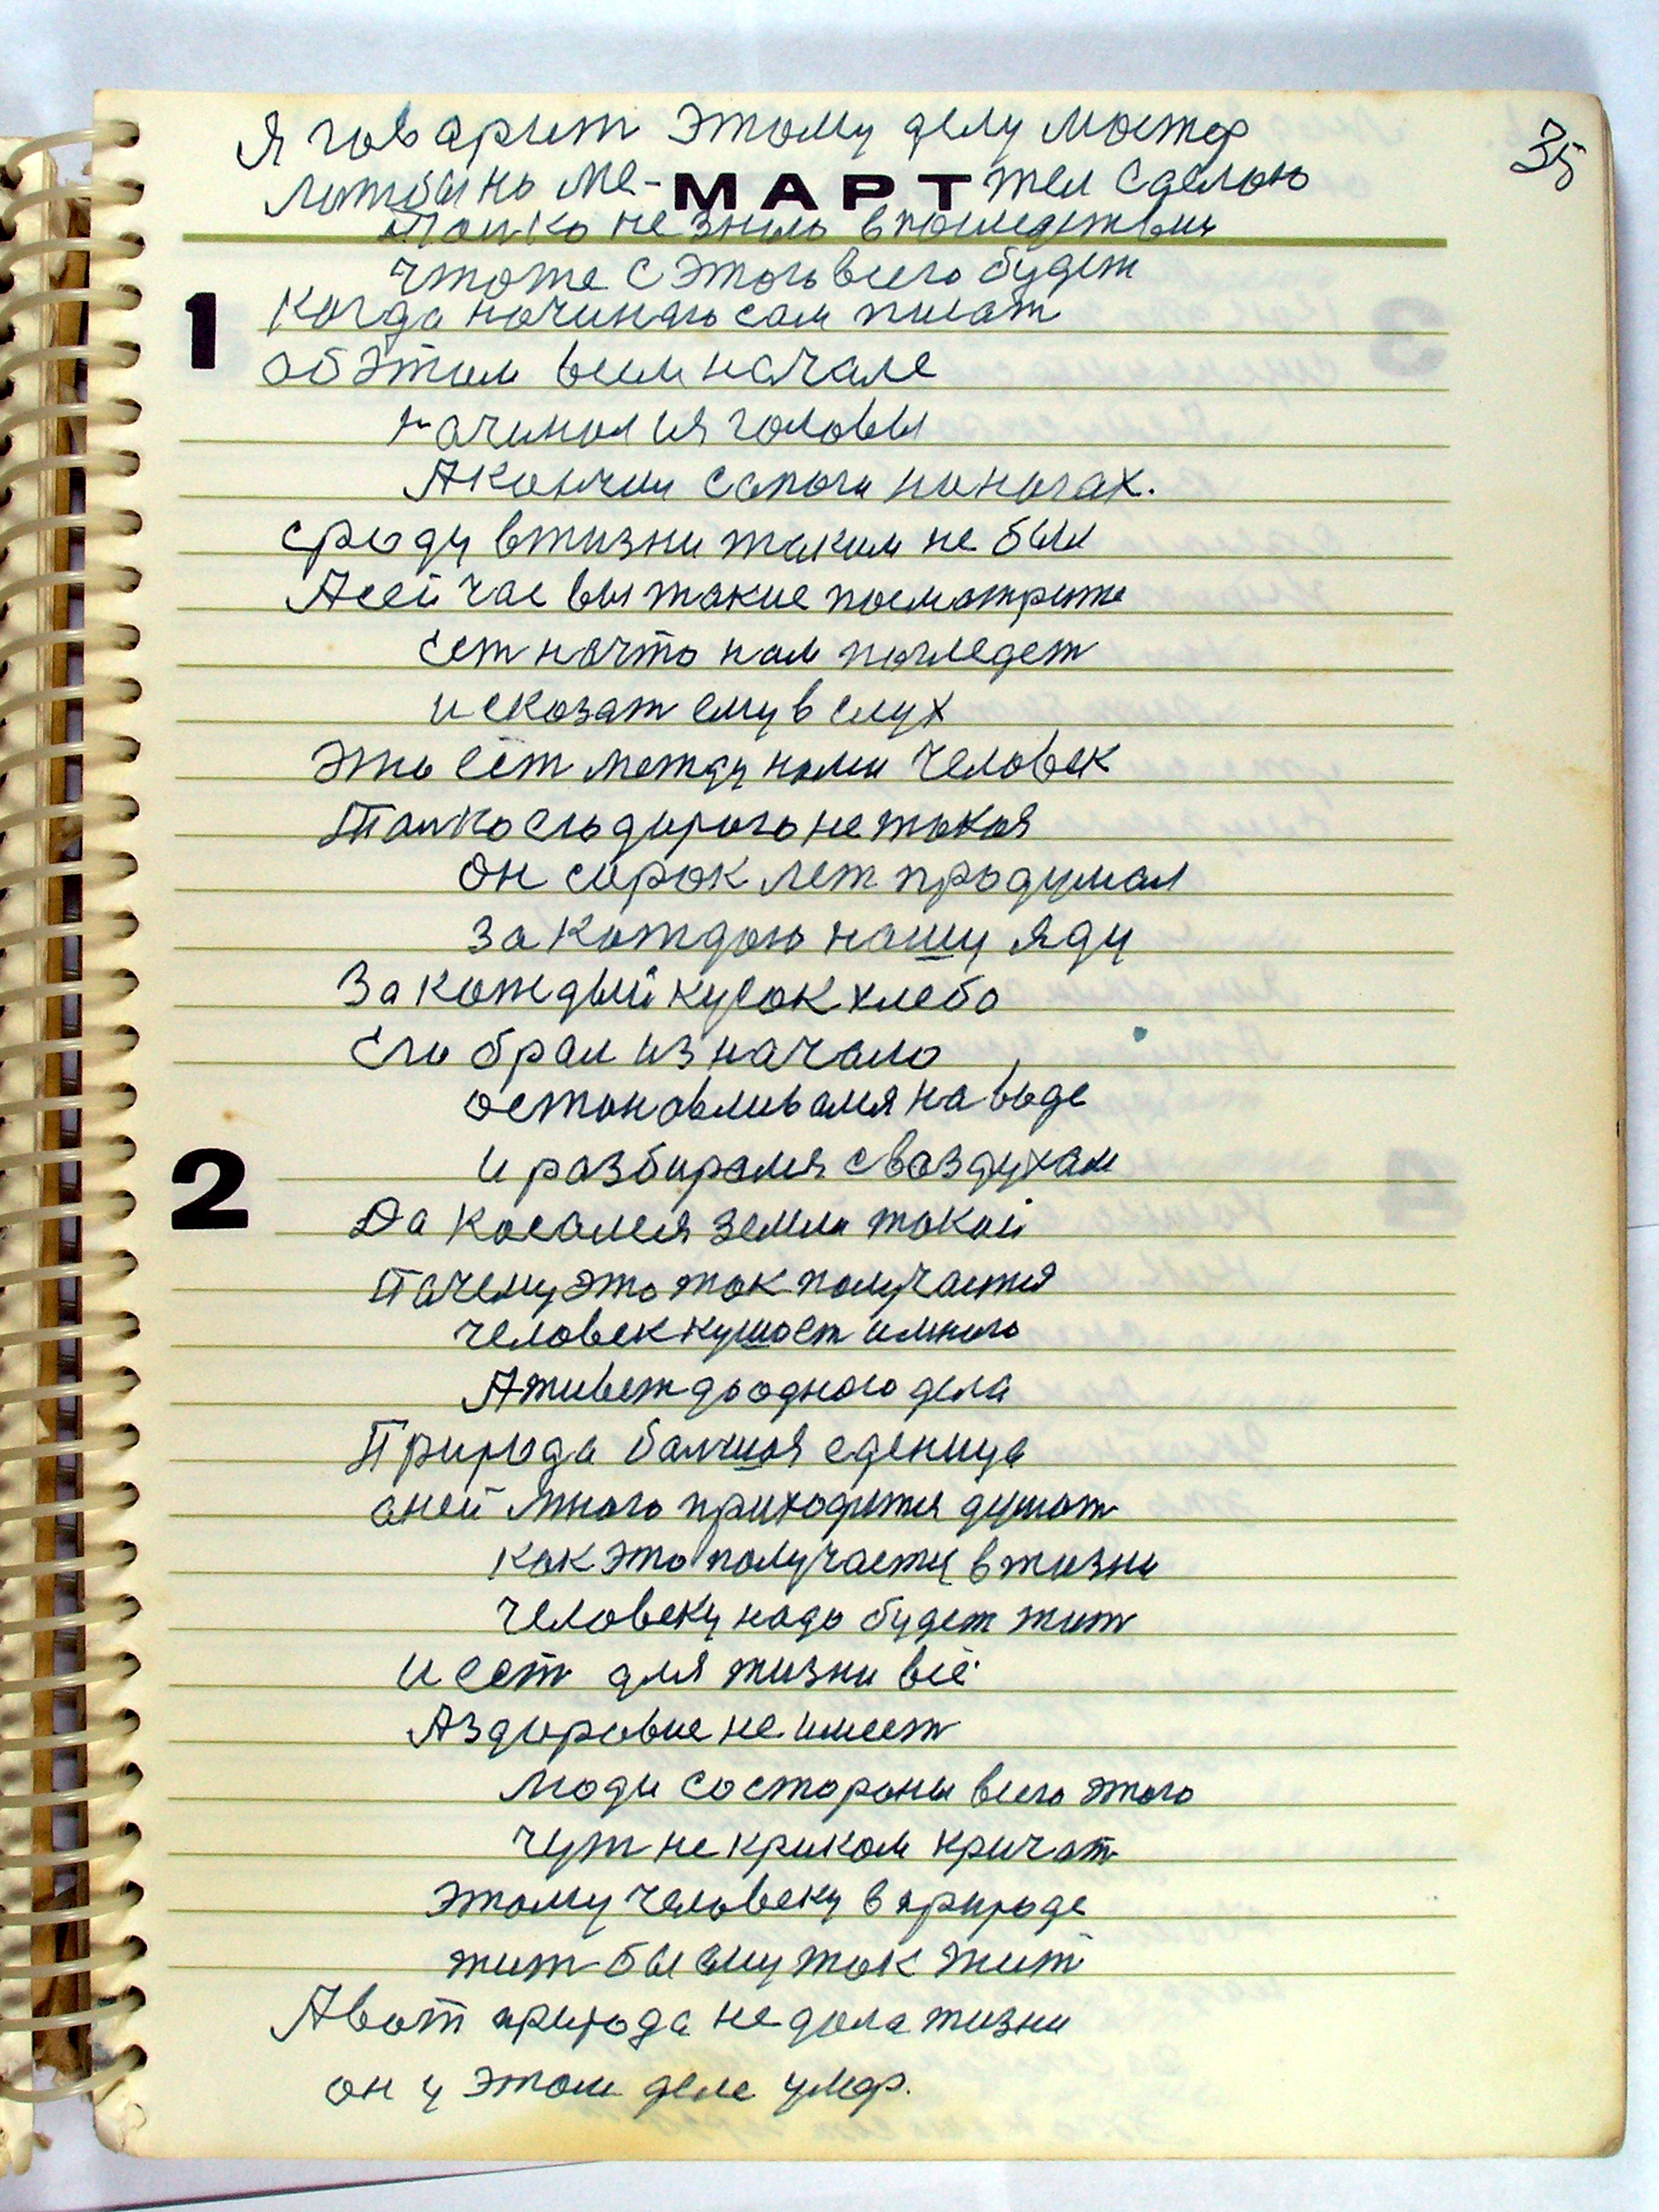 35
Я говарит этому делу мастер
Хотбы но ме- МАРТ тел сделою
Толко не знаю впоследствии
чтоже с этого всего будет
1
Когда начинаю сам писат
об этим всем начале
начинался головы
А кончим сапоги на ногах.
сроду в жизни таким не был
А сейчас вы такие посмотрите
Ест на что нам погледет
и сказат ему в слух
Это ест между нами человек
Толко его дорога не такая
Он сорок лет продумал
За каждою нашу яду
За каждый кусок хлеба
Его брал из начало
останавливался на воде
2
и разбирался с воздухам
Да касался земли такой
Пачему это так получается
человек кушает и много
А живет до одного дела
Природа балшая еденица
с ней много приходится думат
как это получается в жизни
человеку надо будет жит
и ест для жизни всё
А здоровие не имеет
люди со стораны всего этого
чут не криком кричат
этому человеку в природе
жит бы ему так жит
А вот природа не дала жизни
он у этом деле умер.